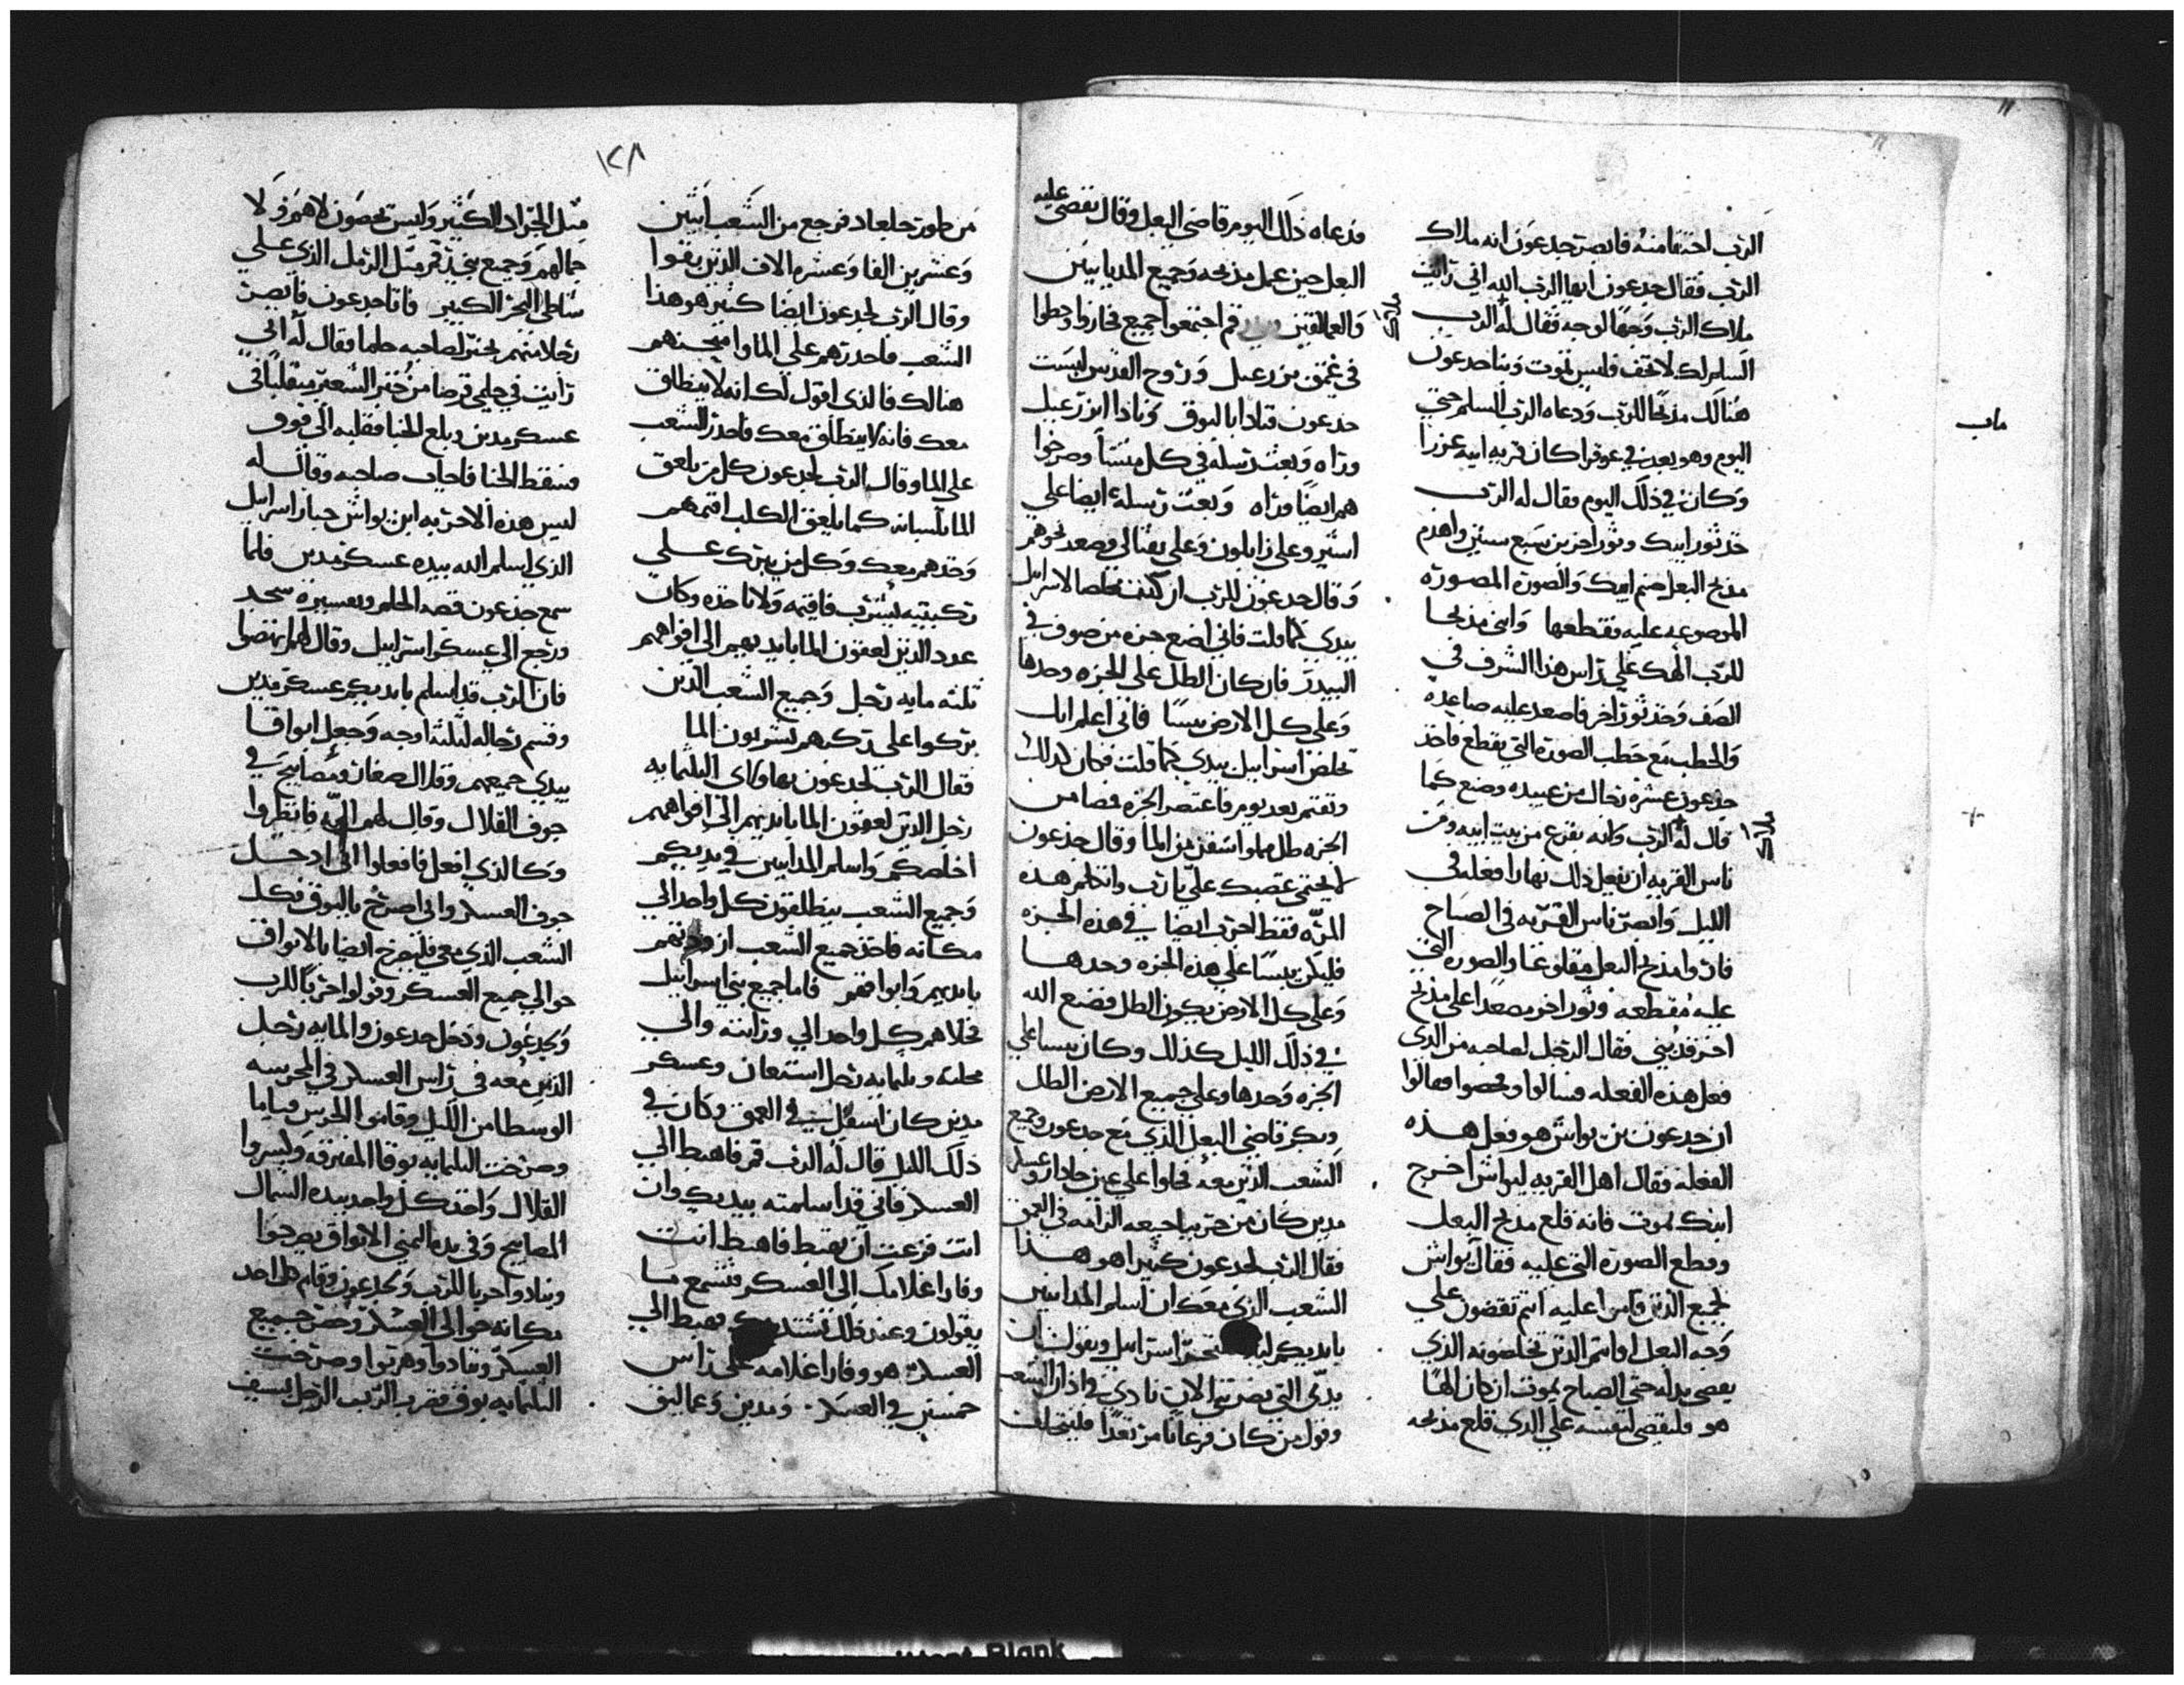 الرب اختفا منه فابصر جدعون انه ملاك
الرب فقال جدعون ايها الرب الله اني رايت
ملاك الرب وجها لوجه فقال له الرب
السلم لك لا تخف فليس تموت وبنا جدعون
هنالك مذبحا للرب ودعاه الرب السلم حتي
اليوم وهو بعد في عوفرا كان قريه ابيه عزرا
وكان في ذلك اليوم فقال له الرب
خذ ثور ابيك وثور اخر بن سبع سنين واهدم
مذبح البعل صنم ابيك والصوره المصوره
الموضوعه عليه فقطعها وابني مذبحا
للرب الهك علي راس هذا الشرف في
الصف وخذ ثور اخر فاصعد عليه صاعده
والحطب مع حطب الصوره التي يقطع فاخذ
جدعون عشره رجال من عبيده وصنع كما
قال له الرب وانه يفزع من بيت ابيه ومن
ناس القريه ان يفعل ذلك نهارا فعله في
الليل وابصر ناس القريه في الصباح
فاذا مذبح البعل مقلوعا والصوره التي
عليه مقطعه وثور اخر مصعدا علي مذبح
اخر قد بني فقال الرجل لصاحبه من الذي
فعل هذه الفعله فسالوا وفحصوا فقالوا
ان جدعون بن يواش هو فعل هذه
الفعله فقال اهل القريه ليواش اخرج
ابنك يموت فانه قلع مذبح البعل
وقطع الصوره التي عليه فقال يواش
لجميع الذين قاموا عليه انتم تقضون علي
وجه البعل او انتم الذين تخلصونه الذي
يقضي بدله حتي الصباح يموت ان كان الها
هو فليقضي لنفسه علي الذي قلع مذبحه
فدعاه ذلك اليوم قاضي البعل وقال يقضي عليه
البعل حين عمل مذبحه وجميع المديانيين
والعمالقين اجتمعوا جميع فجازوا وحطوا
في عمق يزرعيل وروح القدس لبست
جدعون فنادا بالبوق ونادا ابوزرعيل
وراه وبعث رسله في كل منسا وصرخوا
هم ايضا وراه وبعث رسله ايضا علي
اشير وعلي زابلون وعلي نفتالي وصعد نحوهم
وقال جدعون للرب ان كنت مخلصا لاسرايل
بيدي كما قلت فاني اضع جزه من صوف في
البيدر فان كان الطل علي الجزه وحدها
وعلي كل الارض يبسا فاني اعلم انك
تخلص اسراييل بيدي كما قلت فكان كذلك
وتقدم بعد يوم فاعتصر الجزه فصا من
الجزه طل مملوا سفل من الما وقال جدعون
لا يحتمي غضبك علي يارب واتكلم هذه
المره فقط لاجرب ايضا في هذه الجزه
فليكن يبسا علي هذه الجزه وحدها
وعلي كل الارض يكون الطل فصنع الله
في ذلك الليل كذلك وكان يبسا علي
الجزه وحدها وعلي جميع الارض الطل
وبكر قاضي البعل الذي مع جدعون وجميع
الشعب الذين معه فحلوا علي عين جاداز وعسكر
مدين كان من جربيا جبعه الرامه في العمق
فقال الرب لجدعون كثيرا هو هذا
الشعب الذي معك ان اسلم المدانيين
بايديكم اسراييل ويقول ان
يدي التي نصرتني الان نادي في اذان الشعب
وقول من كان فزعانا مرتعدا فلينطلق
١٢٨
من طور جلعاد فرجع من الشعب اثنين
وعشرين الفا وعشره الاف الذين بقوا
وقال الرب لجدعون ايضا كثير هو هذا
الشعب فاحدرهم علي الما وامتحنهم
هنالك فالذي اقول لك انه لا ينطلق
معك فانه لا ينطلق معك فاحدر الشعب
علي الما وقال الرب لجدعون كل من يلعق
الما بلسانه كما يلعق الكلب اقمهم
وحدهم معك وكل من يبرك علي
ركبتيه يشرب فاقمه ولا تاخذه وكان
عدد الذين لعقون الما بايديهم الي افواههم
ثلثه مايه رجل وجميع الشعب الذين
بركوا علي ركبهم يشربون الما
فقال الرب لجدعون بهاولاي الثلثمايه
رجل الذين لعقون الما بايديهم الي افواههم
اخلصكم واسلم المدانيين في يديكم
وجميع الشعب ينطلقون كل واحد الي
مكانه فاخذ جميع الشعب ازودتهم
بايديهم وابواقهم فاما جميع بني اسراييل
فخلاهم كل واحد الي وراينه والي
محلته وثلثمايه رجل استعان وعسكر
مدين كان اسفل بيته في العمق وكان في
ذلك الليل قال له الرب قم فاهبط الي
العسكر فاني قد اسلمته بيديك وان
انت فزعت ان تهبط فاهبط انت
وفارا غلامك الي العسكر فتسمع ما
يقولون وعند ذلك تشتد فهبط الي
العسكر هو وفارا غلامه علي راس
خمسين في العسكر ومدين وعماليق
مثل الجراد الكثير وليس يحصون لا هم ولا
جمالهم وجميع بني قدم مثل الرمل الذي علي
شاطي البحر الكبير فاتا جدعون فابصر
رجلا منهم يخبر لصاحبه حلما فقال له اني
رايت في حلمي قرصا من خبز الشعير منقلبا في
عسكر مدين وبلغ الخبا فقلبه الي فوق
فسقط الخبا فاجاب صاحبه وقال له
ليس هذه الا حربه ابن يواش جبار اسراييل
الذي اسلم الله بيده عسكر مدين فلما
سمع جدعون قصه الحلم وتفسيره سجد
ورجع الي عسكر اسراييل وقال لهم انهضوا
فان الرب قد اسلم بايديكم عسكر مدين
وقسم رجاله لثلثه اوجه وجعل ابواقا
بيدي جميعهم وقلال صفار ومصابيح في
جوف القلال وقال لهم الي فانظروا
وكالذي افعل فافعلوا اني ادخل
جوف العسكر واني اصرخ بالبوق فكل
الشعب الذي معي فليصرخ ايضا بالابواق
حوالي جميع العسكر وقولوا حربا للرب
ولجدعون ودخل جدعون والمايه رجل
الذين معه في راس العسكر في المحرسه
الوسطا من الليل وقاموا الحرس قياما
وصرخت الثلثمايه بوقا المفترقه وكسروا
القلال واخذ كل واحد بيده الشمال
المصابيح وفي يده اليمني الابواق يصرخوا
ونادوا حربا للرب ولجدعون وقام كل احد
مكانه حوالي العسكر وحضر جميع
العسكر ونادوا وهربوا وصرخت
الثلثمايه بوق فضرب الرب الرجل بسيف